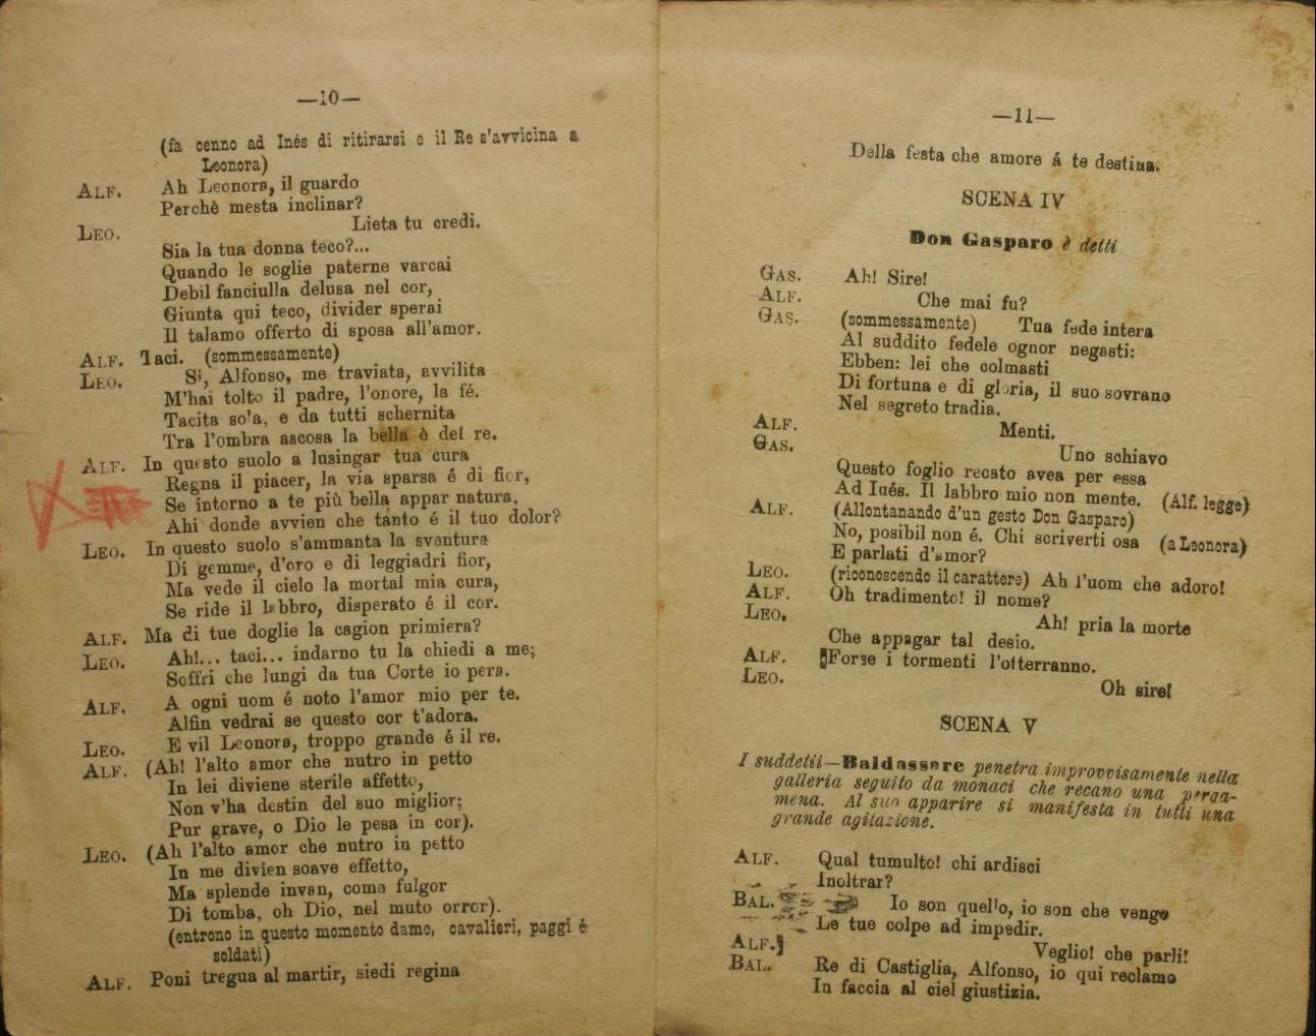 —10—
(fa cenno ad Inés di ritirarsi e il Re s'avvicina a
Leonora)
ALF. Ah Leonora, il guardo
Perchè mesta inclinar?
LEO. Lieta tu credi.
Sia la tua donna teco?...
Quando le soglie paterne varcai
Debil fanciulla delusa nel cor,
Giunta qui teco, divider sperai
Il talamo offerto di sposa all'amor.
ALF. Taci. (sommessamente)
LEO. Si, Alfonso, me traviata, avvilita
M'hai tolto il padre, l'onore, la fé.
Tacita so'a, e da tutti schernita
Tra l'ombra ascosa la bella è del re.
ALF. In questo suolo a lusingar tua cura
Regna il piacer, la via sparsa é di fior,
Se intorno a te più bella appar natura,
Ahi donde avvien che tanto é il tuo dolor?
LEO. In questo suolo s'ammanta la sventura
Di gemme, d'oro e di leggiadri fior,
Ma vede il cielo la mortal mia cura,
Se ride il labbro, disperato é il cor.
ALF. Ma di tue doglie la cagion primiera?
LEO. Ah!... taci... indarno tu la chiedi a me;
Soffri che lungi da tua Corte io pera.
ALF. A ogni uom é noto l'amor mio per te.
Alfin vedrai se questo cor t'adora.
LEO. E vil Leonora, troppo grande é il re.
ALF. (Ah! l'alto amor che nutro in petto
In lei diviene sterile affetto,
Non v'ha destin del suo miglior;
Pur grave, o Dio le pesa in cor).
LEO. (Ah l'alto amor che nutro in petto
In me divien soave effetto,
Ma splende invan, come fulgor
Di tomba, oh Dio, nel muto orror).
(entrono in questo momento dame, cavalieri, paggi é
soldati)
ALF. Poni tregua al martir, siedi regina
—11—
Della festa che amore á te destina.
SCENA IV
Don Gasparo è detti
GAS. Ah! Sire!
ALF. Che mai fu?
GAS. (sommessamente) Tua fede intera
Al suddito fedele ognor negasti:
Ebben: lei che colmasti
Di fortuna e di gloria, il suo sovrano
Nel segreto tradia.
ALF. Menti.
GAS. Uno schiavo
Questo foglio recato avea per essa
Ad Inés. Il labbro mio non mente. (Alf. legge)
ALF. (Allontanando d'un gesto Don Gasparo)
No, posibil non é. Chi scriverti osa (a Leonora)
E parlati d'amor?
LEO. (riconoscendo il carattere) Ah l'uom che adoro!
ALF. Oh tradimento! il nome?
LEO. Ah! pria la morte
Che appagar tal desio.
ALF. Forse i tormenti l'otterranno.
LEO. Oh sire!
SCENA V
I suddetii—Baldassare penetra improvvisamente nella
galleria seguito da monaci che recano una perga-
mena. Al suo apparire si manifesta in tutti una
grande agitazione.
ALF. Qual tumulto! chi ardisci
Inoltrar?
BAL. Io son quello, io son che vengo
Le tue colpe ad impedir.
ALF. Veglio! che parli!
BAL. Re di Castiglia, Alfonso, io qui reclamo
In faccia al ciel giustizia.